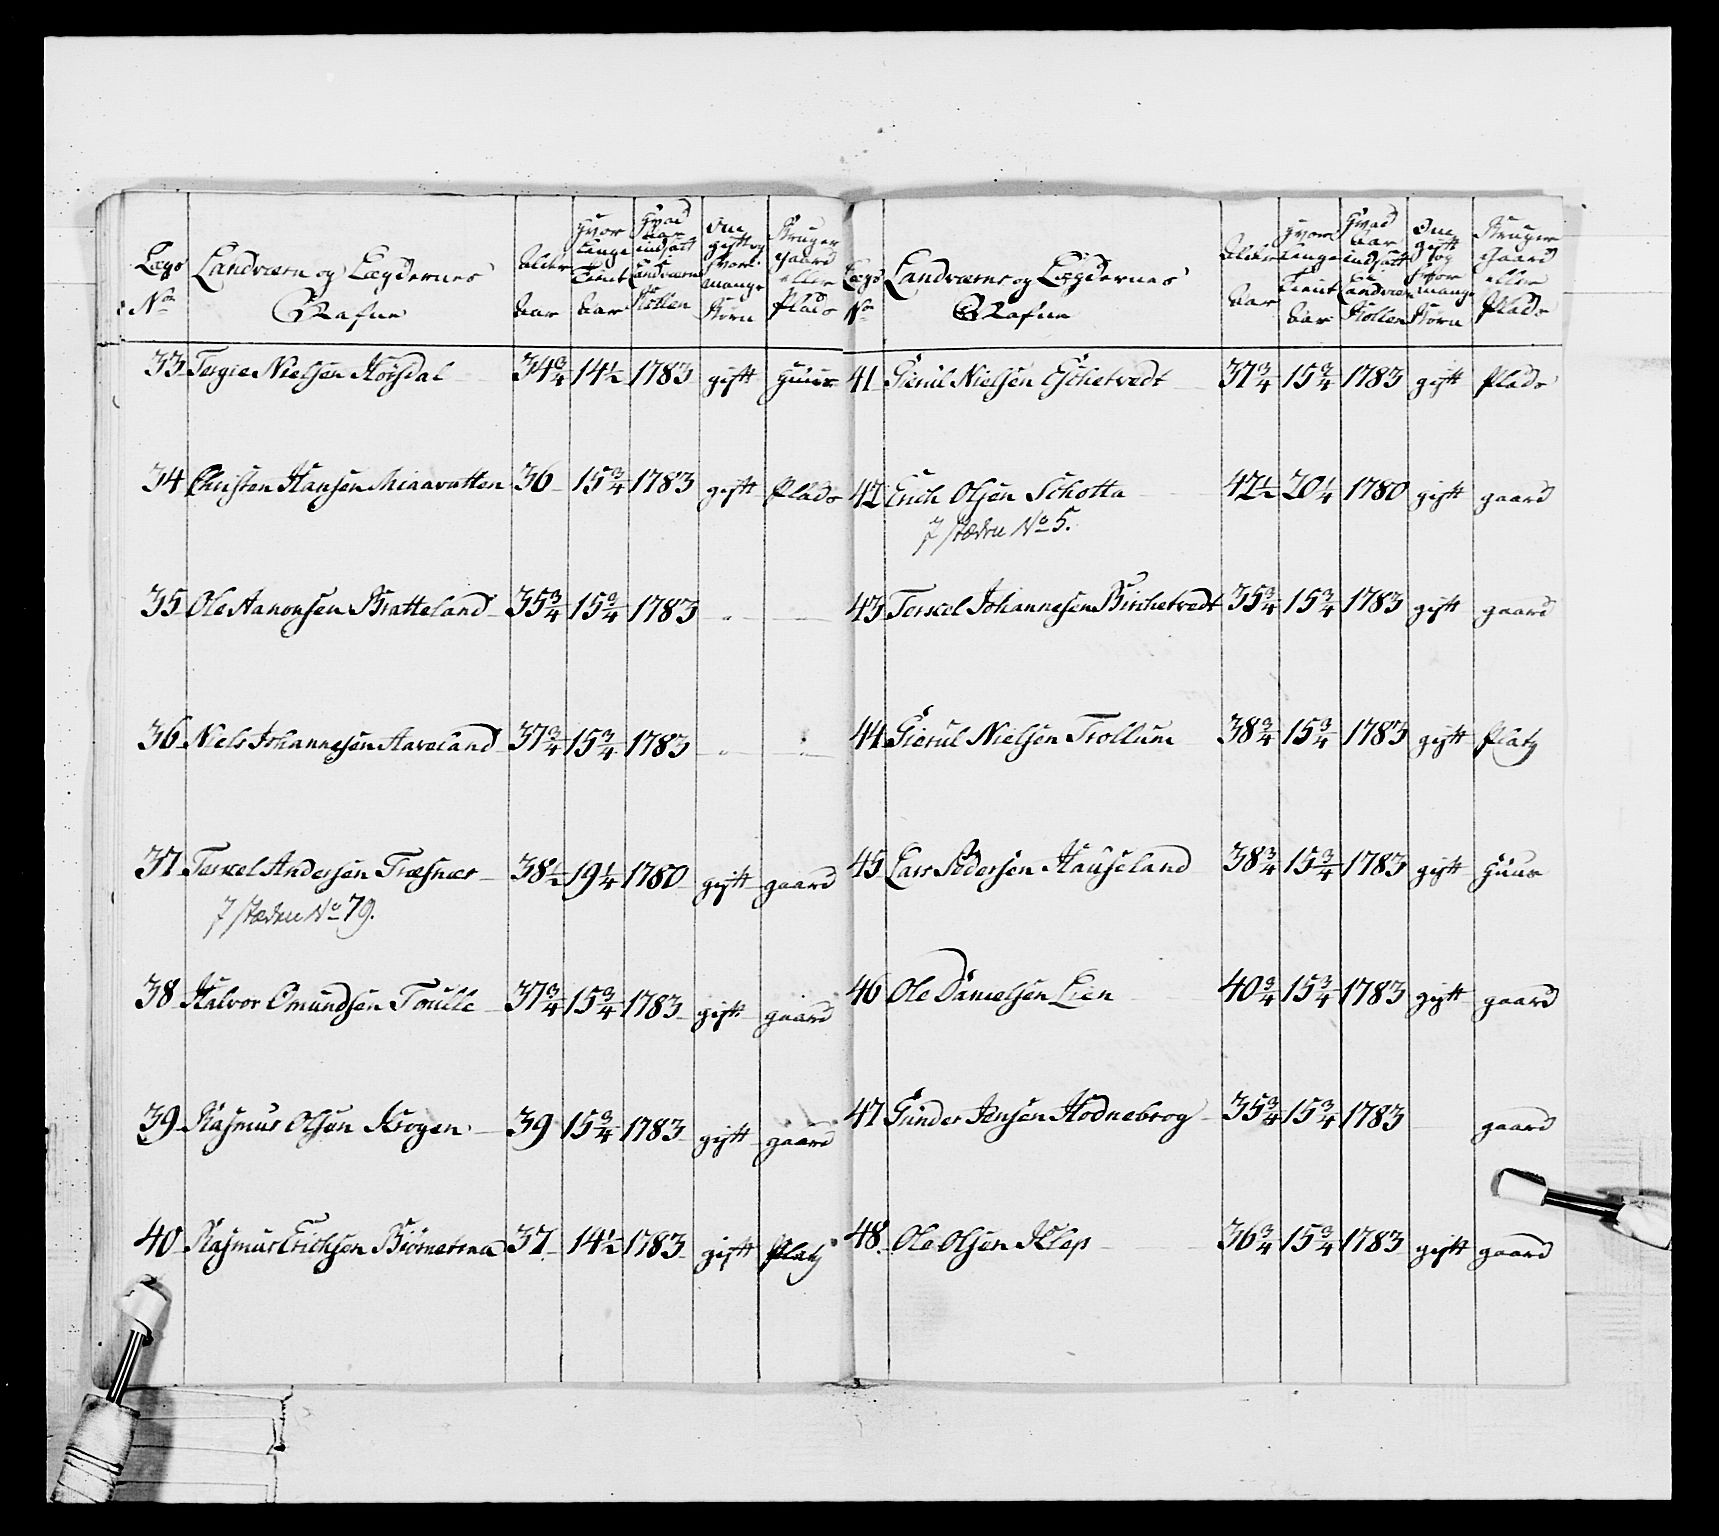 Lægs No Landværn og Lægdernes Nafne Alder Aar Hvor Længe Tient Aar Hvad Aar indsatt i Landværns Rollen Om gift og Hvor mange Børn Bruger Gaard eller Plads
33 Tergie Nielsen Høisdal 34 3/4 14 1/2 1783 gift Huus
34 Christen Hansen Miaavatten 36 15 3/4 1783 gift Plads
35 Ole Aanonsen Bratteland 35 3/4 15 3/4 1783 - -
36 Niels Johannesen Aaveland 37 3/4 15 3/4 1783 - -
37 Terkel Andersen Træsnæs 38 1/2 19 1/4 1780 gift gaard
I stæden No 79.
38 Halvor Omundsen 37 3/4 15 3/4 1783 gift gaard
39 Rasmus Olsen Krogen 39 15 3/4 1783 gift gaard
40 Rasmus Erichsen 37 14 1/2 1783 gift Platz
Lægs No Landværns og Lægdernes Nafne Alder Aar Hvor Længe Tient Aar Hvad Aar indsatt i Landværn Rollen Om gift og Hvor mange Børn Bruger Gaard eller Plads
41 Gierul Nielsen Eschetvedt 37 3/4 15 3/4 1783 gift Plads
42 Erich Olsen Schotta 42 1/2 20 1/4 1780 gift gaard
I stæden No 5.
43 Terkel Johannesen Birchetvedt 35 3/4 15 3/4 1783 gift gaard
44 Gierul Nielsen Trollum 38 3/4 15 3/4 1783 gift Platz
45 Lars Pedersen Hauseland 38 3/4 15 3/4 1783 gift Huus
46 Ole Danielsen Lien 40 3/4 15 3/4 1783 gift gaard
47 Gunder Jensen Hodnebrog 35 3/4 15 3/4 1783 gaard
48 Ole Olsen Klep 36 3/4 15 3/4 1783 gift gaard